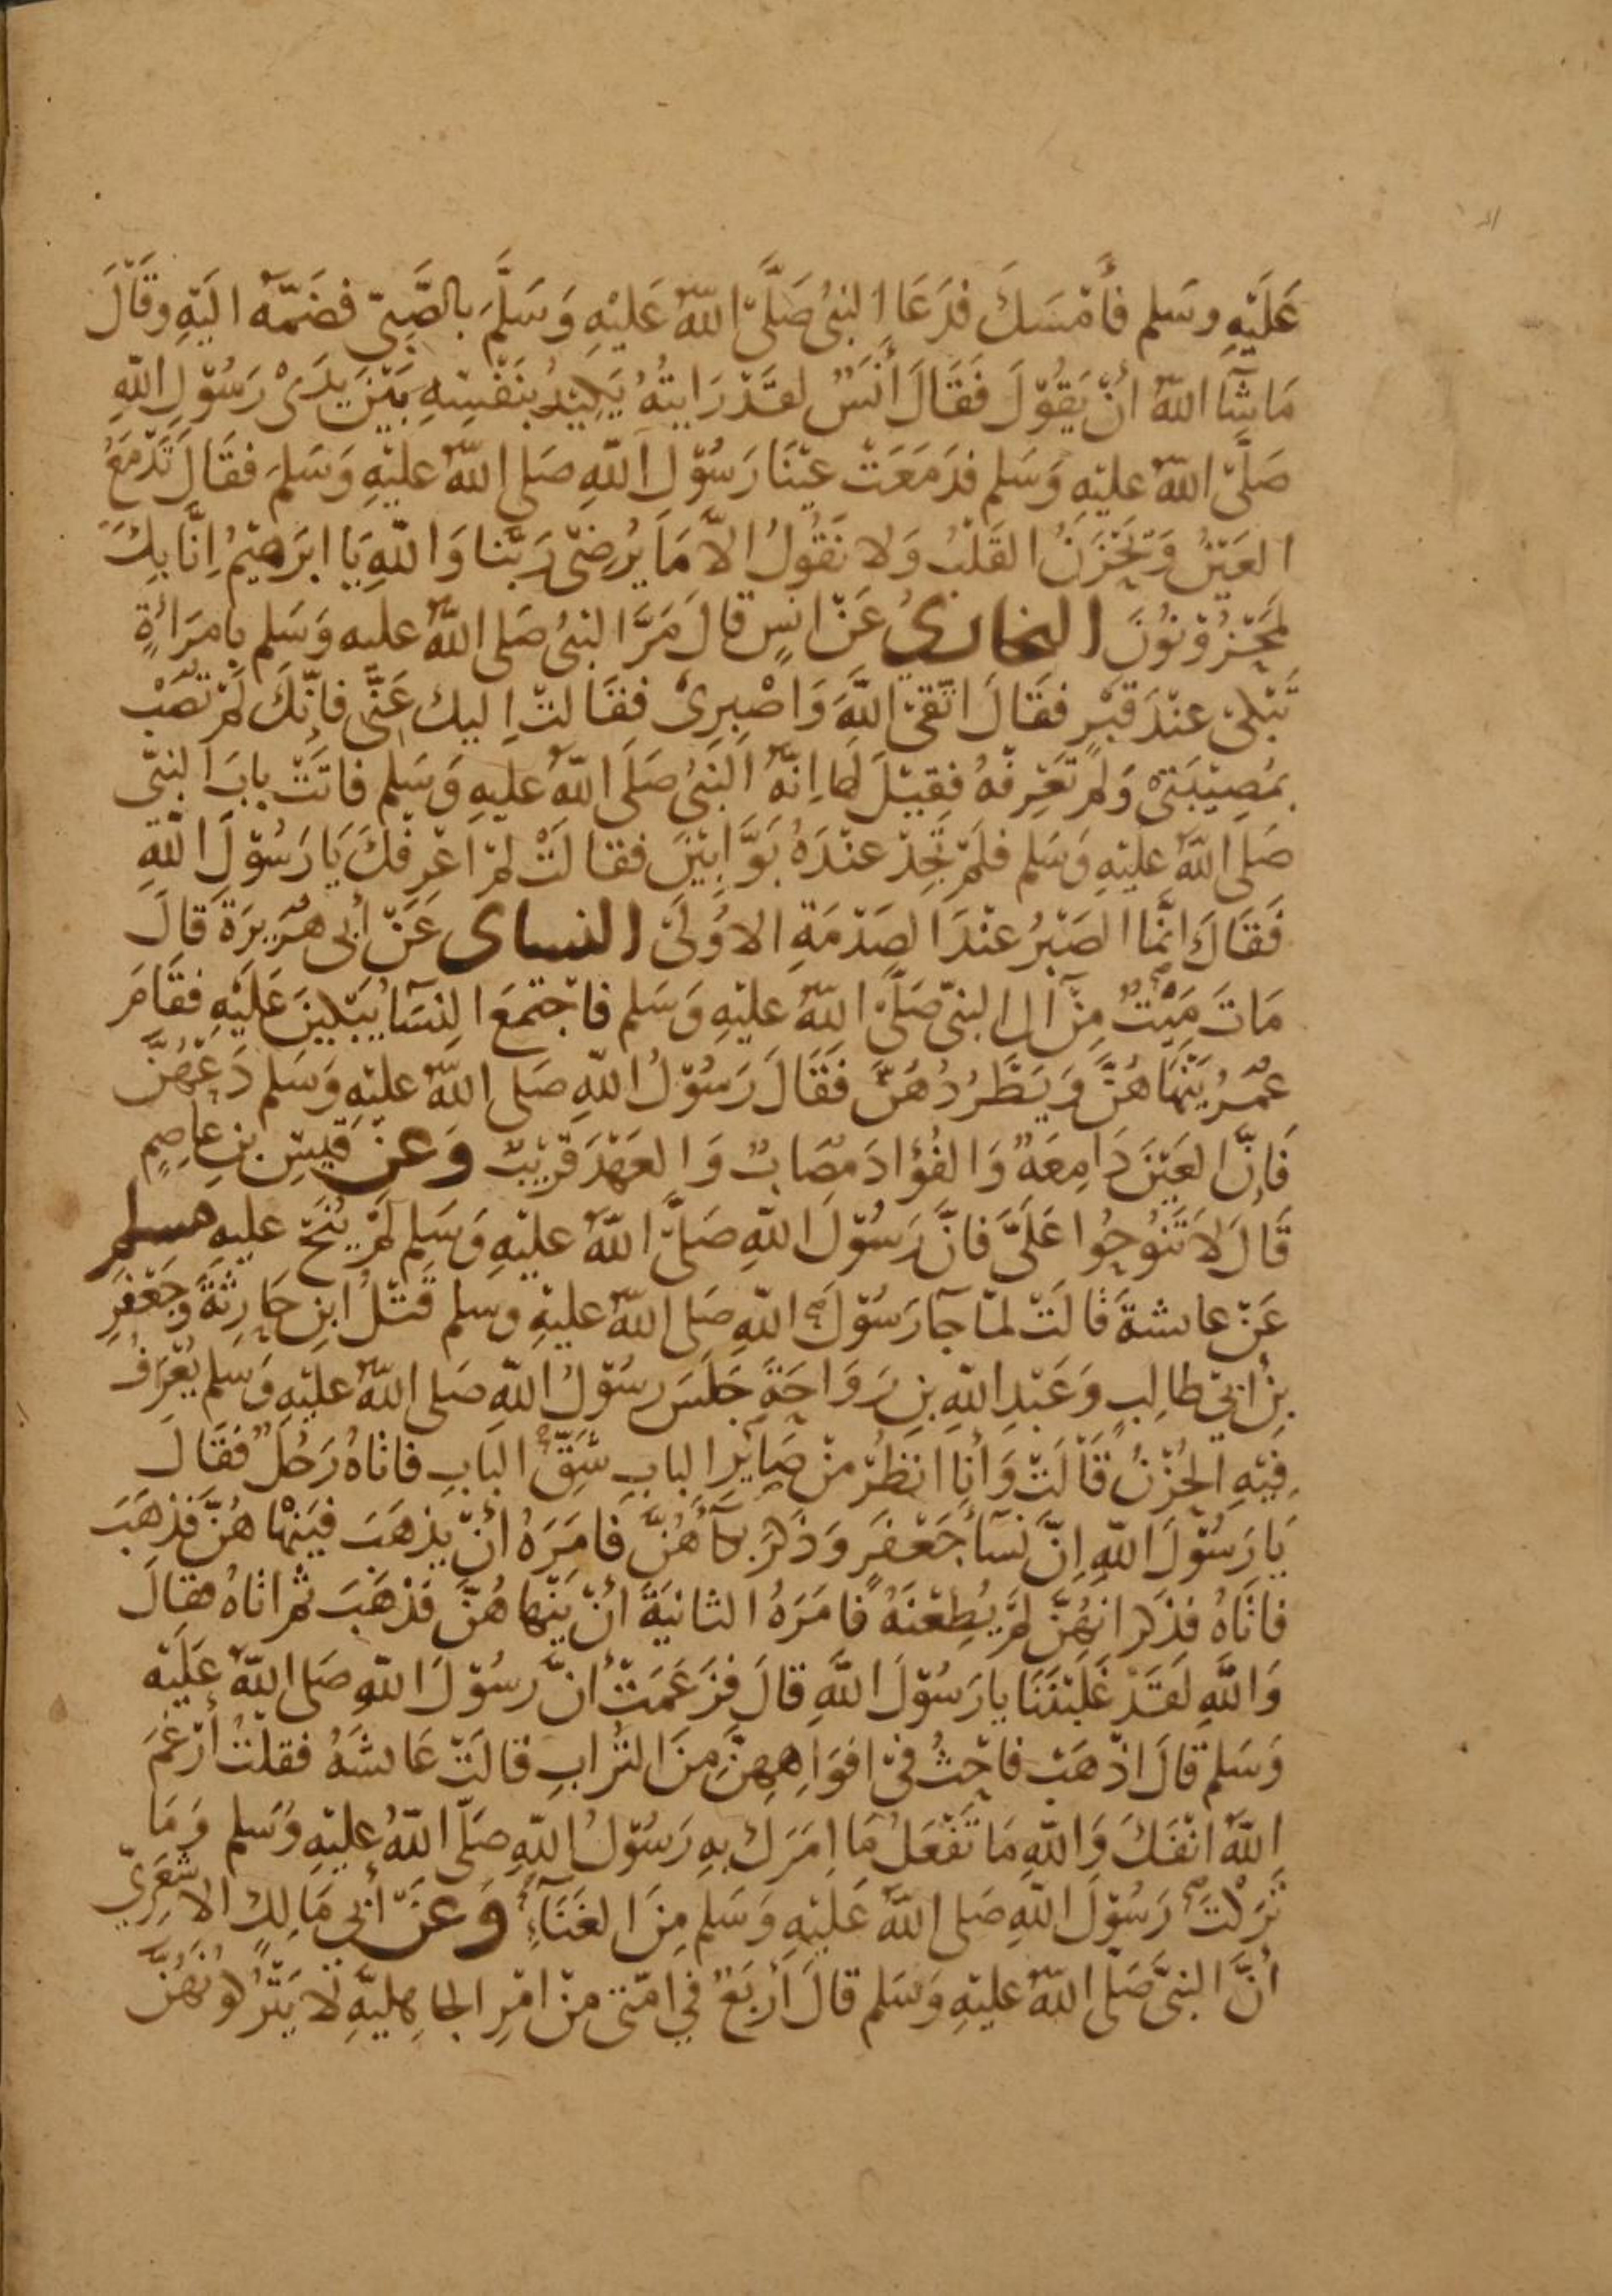 عَلَيْهِ وسَلم فأَمْسَكَ فدَعَا النبىُ صَلَّى اللّهُ عَليْهِ وَسَلَّمَ بالصَّبِىّ فضَمَّهُ اليَهِ وقَالَ
مَاشَآ اللّهُ انْ يَقُوْلَ فَقَالَ أنَسٌ لقَدْ رَايتُهُ يَكِيْدُ بنَفْسِهِ بَيْنَ يَدَىْ رَسُوْلِ اللّهِ
صَلَّى اللّهُ عليْهِ وَسَلم فدَمَعَتْ عيْنَا رَسُوْل اللّهِ صَلى اللّهُ عليْهِ وَسَلمَ فقَالَ تَدْمَعُ
العَيْنُ وَتَحْزَنُ القَلْبُ وَلا نَقُولُ الاَّ مَا يُرضِىْ رَبَّنا وَاللّهِ يَا ابرَهيْمُ اِنَّا بِكَ
لمَحْزُوْنُونَ البخارىُ عَنْ انسٍ قالَ مَرَّ النبىُ صَلى اللّهُ عليه وَسَلم بامرَاَةٍ
تَبْكىْ عنْدَ قَبْرٍ فقَالَ اتّقىْ اللّهَ وَاصْبِرىْ فقَالتْ اِليك عَنّى فاِنّكَ لَمْ تصَبْ
بمُصِيْبَتىْ وَلمْ تَعْرِفْهُ فقِيْلَ لها اِنّهُ النَبىُ صَلَى اللّهُ عليهِ وَسَلم فاتَتْ بابَ النبىّ
صَلى اللّهُ عليْهِ وَسَلم فلمْ تجِدْ عنْدَهُ بَوَّابيْنَ فقالَتْ لمْ اعْرِفْكَ يَا رَسُوْلَ اللّهِ
فَقَالَ انمَّا الصَبْرُ عنْدَ الصَدْمَةِ الاوُلَىْ النساى عَنْ أبى هُرَيرَةَ قالَ
مَاتَ مَيّتٌ مِنْ آلِ النبىّ صَلَّى اللّهُ عليْهِ وَسَلم فاجْتمَعَ النِسَآ يَبْكينَ عَليْهِ فقَامَ
عُمَرُ يَنْهَاهُنَّ وَيَطْرُدُهُنَّ فَقَالَ رَسُوْلُ اللّهِ صَلى اللّهُ عليْهِ وَسَلم دَعْهُنَّ
فَاِنَّ العَيْنَ دَامِعَةٌ وَالفُؤَادَ مصَابٌ وَالعَهْدَ قَرْيْبٌ وَعن قيسِ بنِ عاصِمٍ
قَالَ لاَ تَنُوحُوا عَلَىَّ فانَّ رَسُوْلَ اللّهِ صَلَّى اللّهُ عليْهِ وَسَلم لمْ يُنَحْ عليهِ مسلم
عَنْ عايشة قَالَتْ لمّا جآ رَسُوْلَ اللّهِ صَلى اللّهُ عليْهِ وسلم قَتْلُ ابنِ حَارِثةَ وَجَعْفَرِ
بنِ ابىْ طالِبٍ وَعَبْدِ اللّهِ بنِ رَوَاحَةَ جَلسَ رسُوْلُ اللّهِ صَلى اللّهُ عليْهِ وَسَلم يُعْرَفُ
فِيْهِ الحُزْنُ قَالَتْ وَأنا انظُرُ منْ صَايرِ البابِ شَقّ البَابِ فاتَاهُ رَجُلٌ فقَالَ
يَا رَسُوْلَ اللّهِ اِنَّ نسَآ جَعْفَرٍ وَذَكَرَ بكآهُنَّ فَامَرَهُ انْ يَذهَبَ فيَنْهَا هُنَّ فذَهَبَ
فاتَاهُ فذَكرَ انهُنَّ لمْ يُطِعْنَهُ فَامَرَهُ الثانيَةَ انْ يَنْها هُنَّ فذَهَبَ ثم اتاهُ فقالَ
وَاللّهِ لَقَدْ غَلبْنَنَا يا رَسُوْلَ اللّهِ قالَ فزَعَمَتْ انَّ رسُوْلَ اللّهِ صَلى اللّهُ عَليْه
وَسَلم قالَ اذْهَبْ فاحْثُ فىْ افوَاهِهِنَّ منَ التُرَابِ قالَتْ عَايشَهُ فقلْتُ أرْغَمَ
اللّهُ انْفَكَ وَاللّهِ مَا تَفْعَلُ مَا امَرَكَ بهِ رَسُوْلُ اللّهِ صَلّى اللّهُ عليْهِ وَسَلم وَمَا
تَرَكْتَ رَسُوْلَ اللّهِ صَلى اللّهُ عَليْهِ وَسَلم مِنَ العَنَآءِ وَعَنْ أبى مَالِكٍ الاشْعَرِىّ
أنَّ النبىَّ صَلَّى اللّهُ عليْهِ وَسَلم قالَ أرْبَعٌ فى امّتى مِنْ امْرِ الجاهِليَّهِ لاَ يَتْرُكُونَهُنَّ